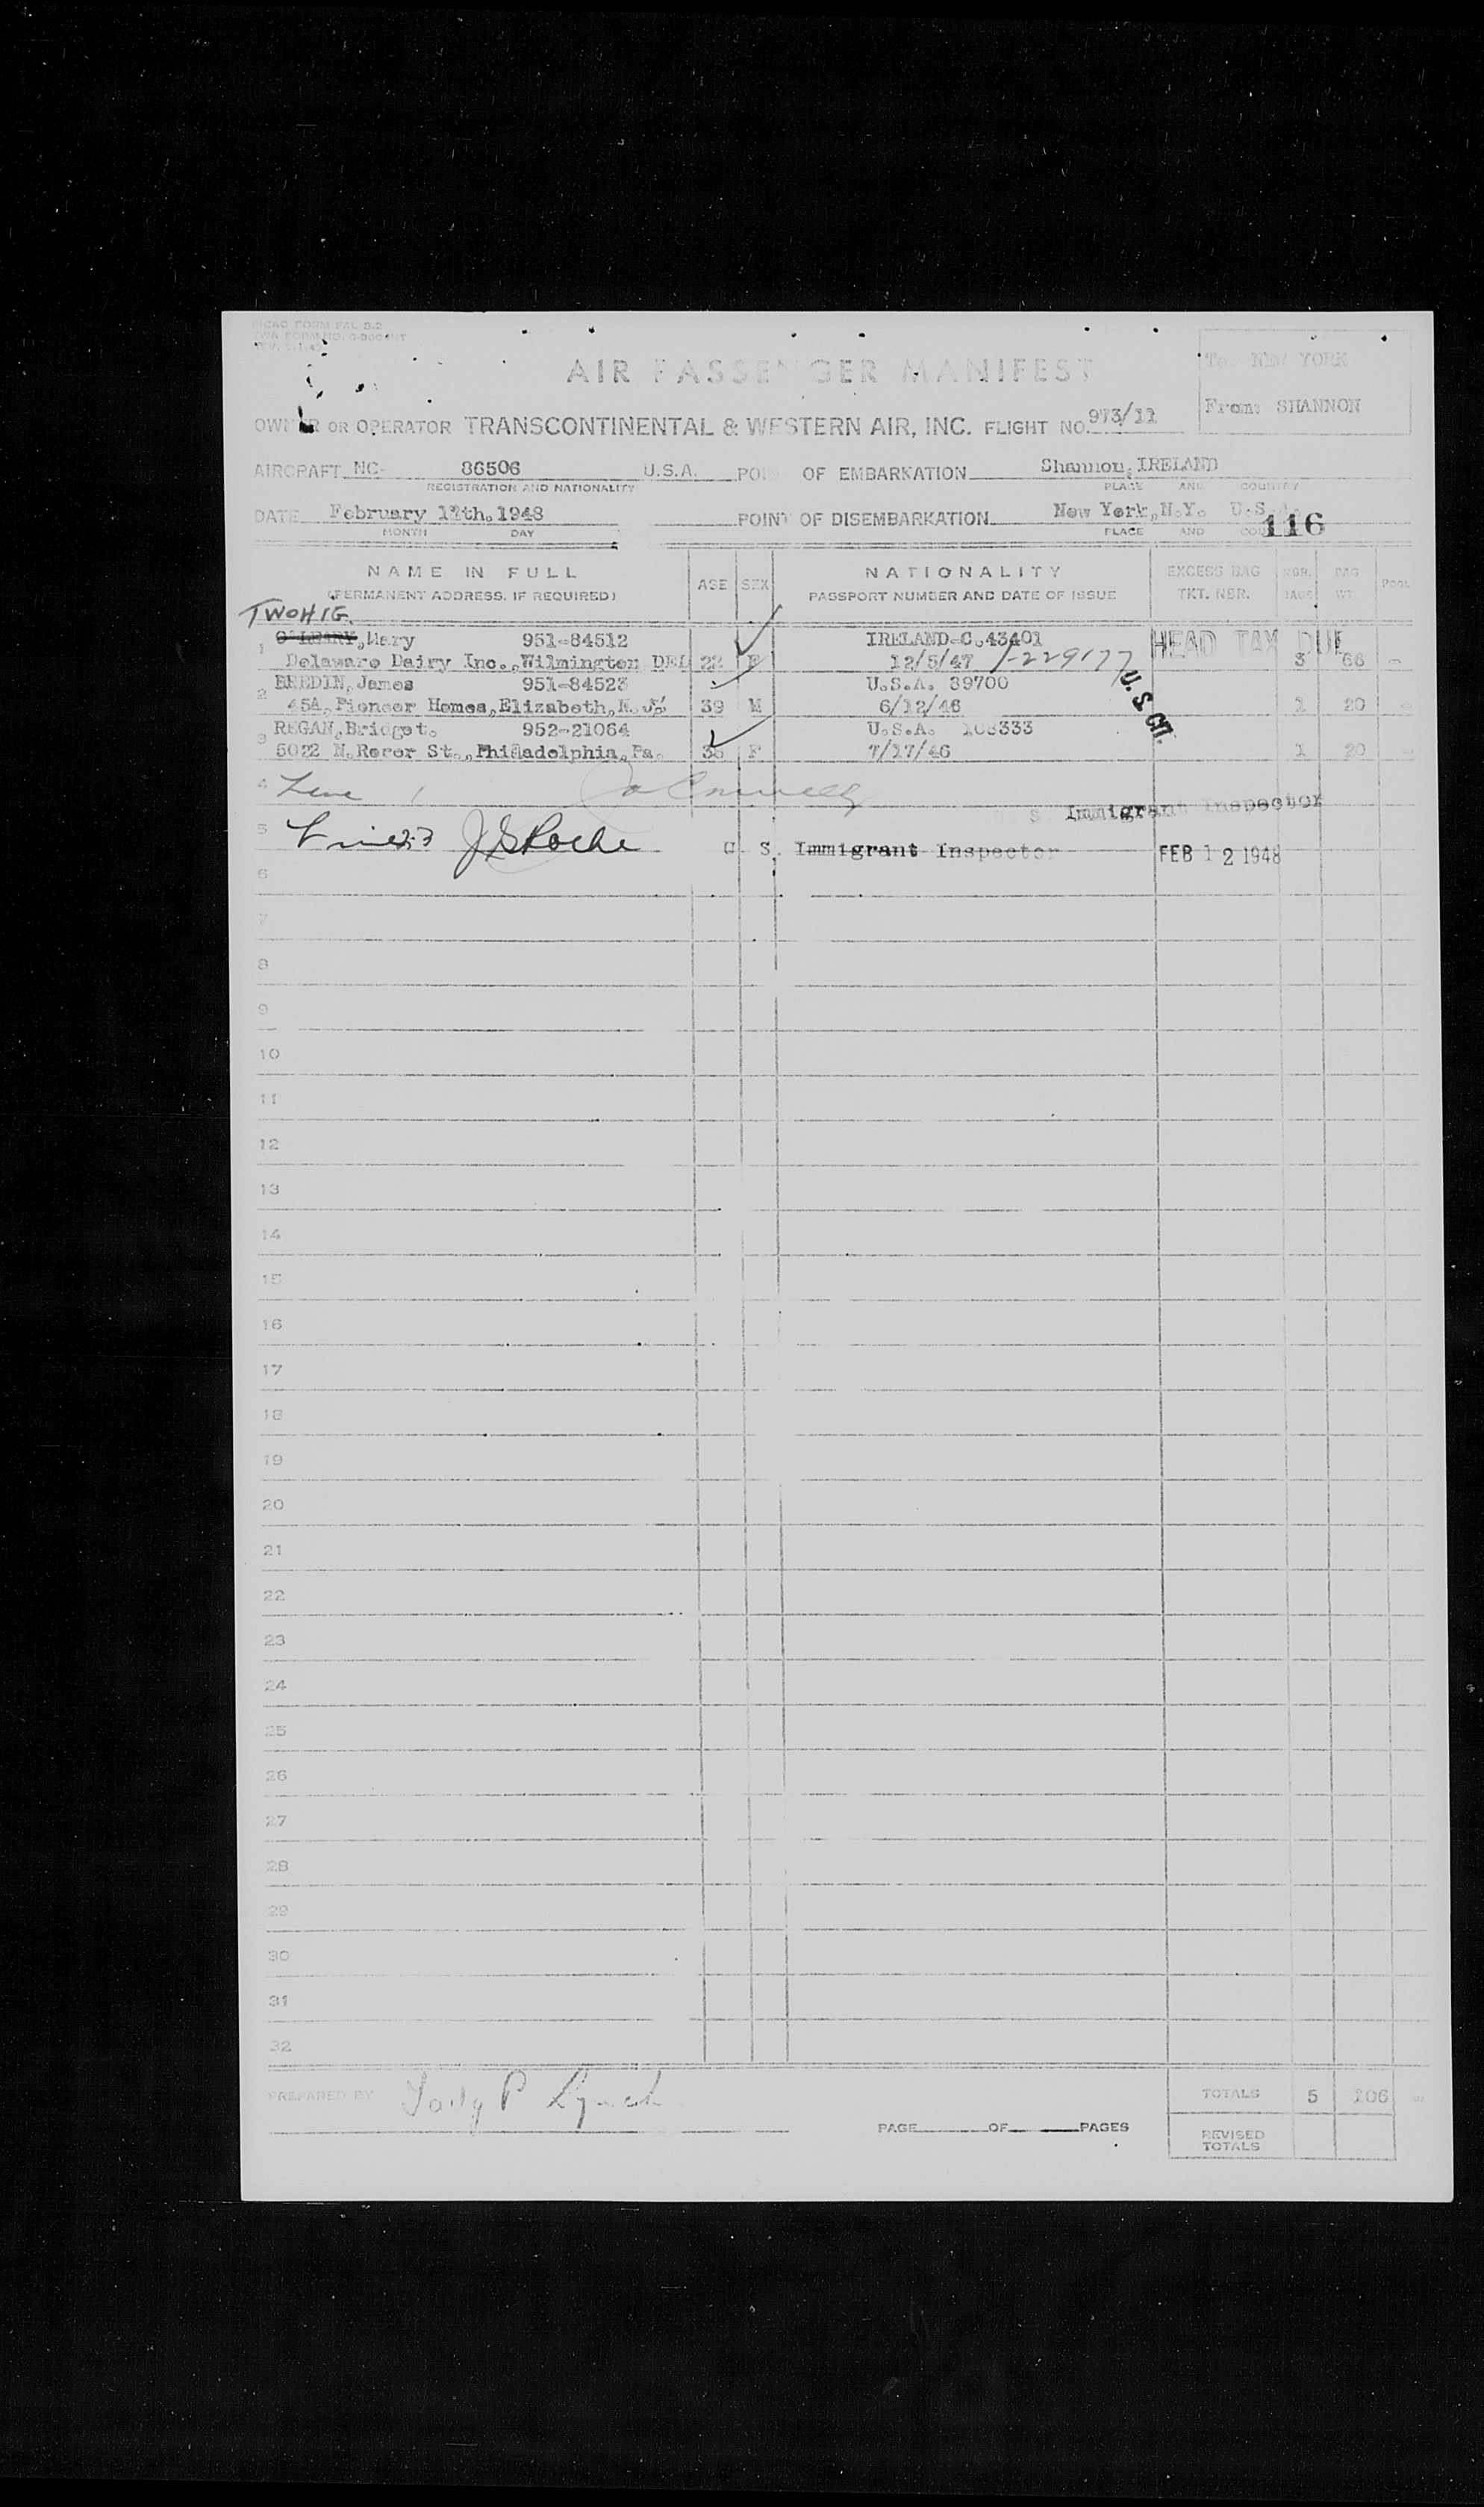 ICAO FORM FAL 3.2
AIR PASSENGER MANIFEST
To: NEW YORK
From: SHANNON
OWNER OR OPERATOR TRANSCONTINENTAL & WESTERN AIR, INC. FLIGHT NO. 973/11
AIRCRAFT NC- 86506 U.S.A. POINT OF EMBARKATION Shannon, IRELAND
REGISTRATION AND NATIONALITY PLACE AND COUNTRY
DATE February 12th.1948 POINT OF DISEMBARKATION New York,N.Y. U.S.A.
MONTH DAY PLACE AND COUNTRY
116
NAME IN FULL AGE SEX NATIONALITY EXCESS BAG NBR. BAG POOL
(PERMANENT ADDRESS, IF REQUIRED) PASSPORT NUMBER AND DATE OF ISSUE TKT. NBR. BAGS WT.
TWOHIG.
1 O'LEARY,Mary 951-84512 IRELAND-C.43401 HEAD TAX DUE
Delaware Dairy Inc.,Wilmington DEL 22 F 12/5/47 1-229177 3 66
2 BREDIN,James 951-84523 U.S.A. 39700 U.S CIT.
45A,Pioneer Homes,Elizabeth,N.J. 39 M 6/12/46 1 20
3 REGAN,Bridget. 952-21064 U.S.A.
5022 N.Rorer St.,Philadelphia,Pa. F 7/17/46 1 20
4 Line 1
U. S. Immigrant Inspector
5 J S Roche U. S. Immigrant Inspector FEB 12 1948
6
7
8
9
10
11
12
13
14
15
16
17
18
19
20
21
22
23
24
25
26
27
28
29
30
31
32
PREPARED BY P Lynch TOTALS 5 106
PAGE OF PAGES
REVISED
TOTALS